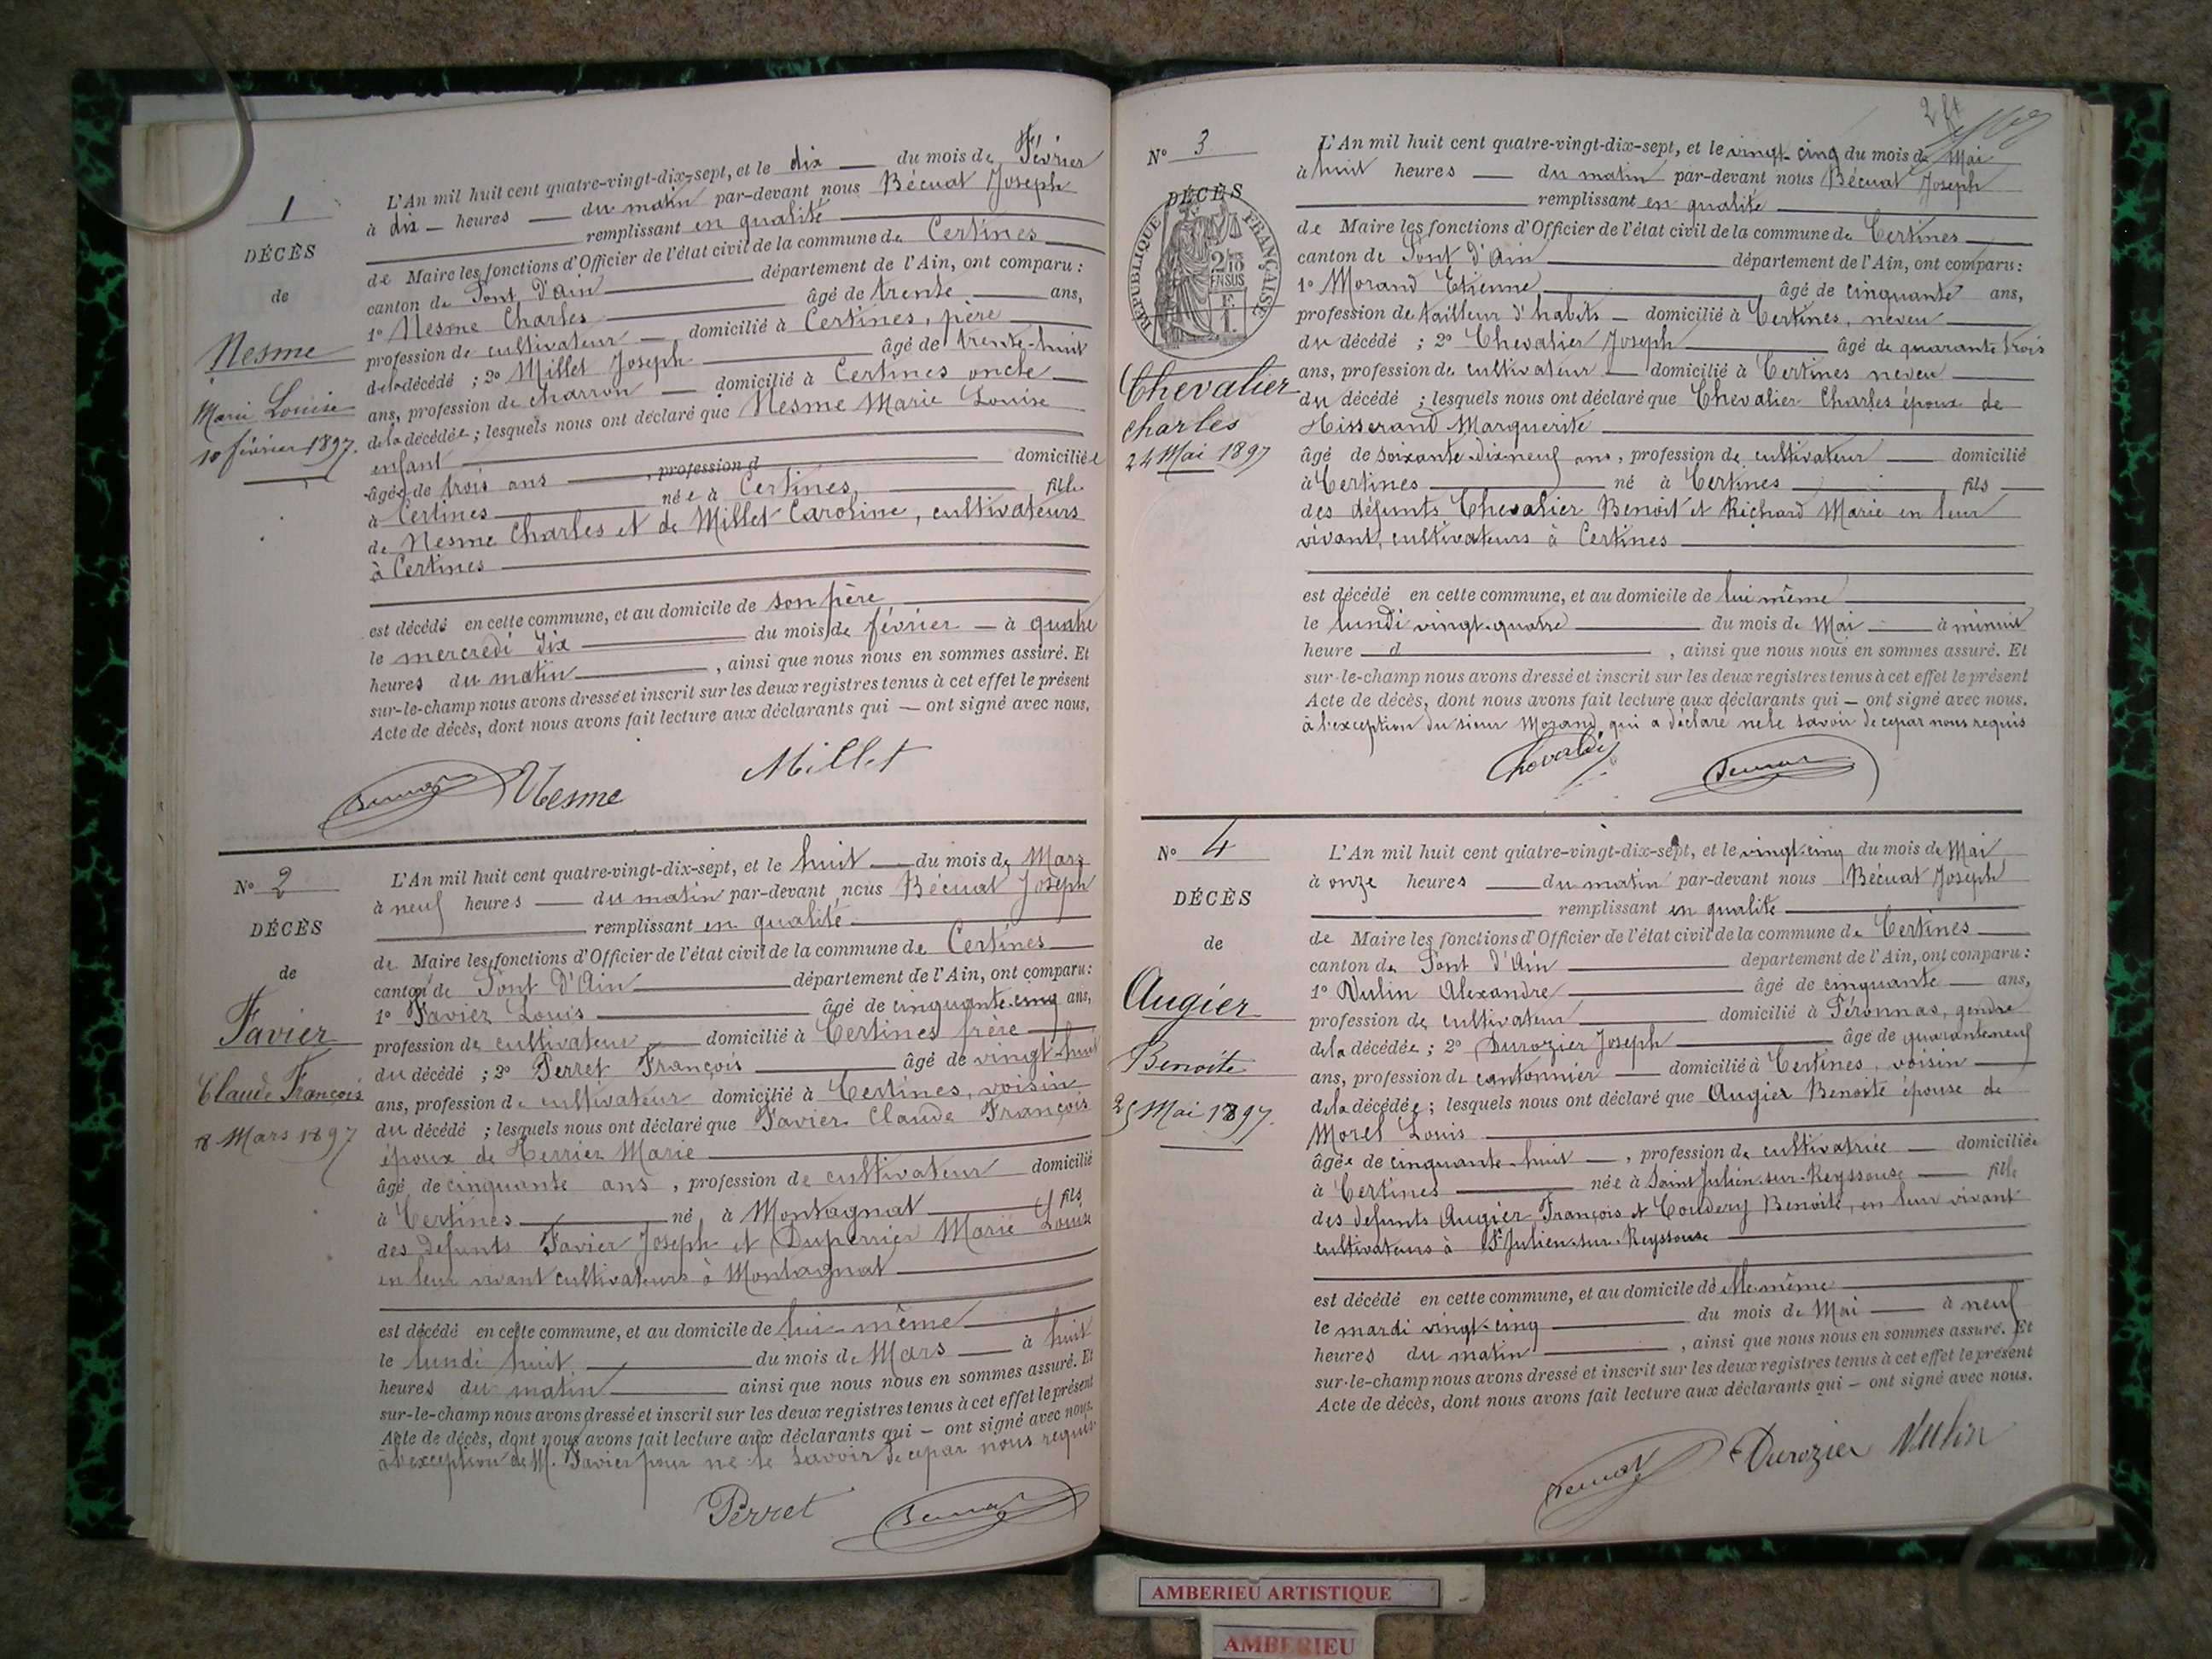 1
DÉCÈS
de
Nesme
Marie Louise
10 février 1897.
L'An mil huit cent quatre-vingt-dix-sept, et le dix du mois de Février
à dix heures du matin par-devant nous Bécuat Joseph
remplissant en qualité
de Maire les fonctions d'Officier de l'état civil de la commune de Certines
canton de Pont d'Ain département de l'Ain, ont comparu :
1º Nesme Charles âgé de trente ans,
profession de cultivateur domicilié à Certines, père
de la décédé ; 2º Millet Joseph âgé de trente-huit
ans, profession de charron domicilié à Certines oncle
de la décédée ; lesquels nous ont déclaré que Nesme Marie Louise
enfant
âgée de trois ans , profession d domiciliée
à Certines née à Certines, fille
de Nesme Charles et de Millet Caroline, cultivateurs
à Certines
est décédé en cette commune, et au domicile de son père
le mercredi dix du mois de février à quatre
heures du matin , ainsi que nous nous en sommes assuré. Et
sur-le-champ nous avons dressé et inscrit sur les deux registres tenus à cet effet le présent
Acte de décès, dont nous avons fait lecture aux déclarants qui — ont signé avec nous.
Nesme Millet
Nº 2
DÉCÈS
de
Favier
Claude François
8 Mars 1897
L'An mil huit cent quatre-vingt-dix-sept, et le huit du mois de Mars
à neuf heures du matin par-devant nous Bécuat Joseph
remplissant en qualité
de Maire les fonctions d'Officier de l'état civil de la commune de Certines
canton de Pont D'Ain département de l'Ain, ont comparu :
1º Favier Louis âgé de cinquante-cinq ans,
profession de cultivateur domicilié à Certines frère
du décédé ; 2º Perret François âgé de vingt-huit
ans, profession de cultivateur domicilié à Certines, voisin
du décédé ; lesquels nous ont déclaré que Favier Claude François
époux de Terrier Marie
âgé de cinquante ans , profession de cultivateur domicilié
à Certines né à Montagnat fils
des défunts Favier Joseph et Duperrier Marie Louise
en leur vivant cultivateurs à Montagnat
est décédé en cette commune, et au domicile de lui-même
le lundi huit du mois de Mars à huit
heures du matin ainsi que nous nous en sommes assuré. Et
sur-le-champ nous avons dressé et inscrit sur les deux registres tenus à cet effet le présent
Acte de décès, dont nous avons fait lecture aux déclarants qui — ont signé avec nous.
à l'exception de M. Favier pour ne le savoir de ce par nous requis
Perret
Nº 3
DÉCÈS
RÉPUBLIQUE FRANÇAISE
2/10 EN SUS
Chevalier
Charles
24 Mai 1897
L'An mil huit cent quatre-vingt-dix-sept, et le vingt-cinq du mois de Mai
à huit heures du matin par-devant nous Bécuat Joseph
remplissant en qualité
de Maire les fonctions d'Officier de l'état civil de la commune de Certines
canton de Pont d'Ain département de l'Ain, ont comparu :
1º Morand Etienne âgé de cinquante ans,
profession de tailleur d'habits domicilié à Certines, neveu
du décédé ; 2º Chevalier Joseph âgé de quarante trois
ans, profession de cultivateur domicilié à Certines neveu
du décédé ; lesquels nous ont déclaré que Chevalier Charles époux de
Tisserand Marguerite
âgé de soixante-dix neuf ans, profession de cultivateur domicilié
à Certines né à Certines fils
des défunts Chevalier Benoît et Richard Marie en leur
vivant, cultivateurs à Certines
est décédé en cette commune, et au domicile de lui même
le lundi vingt-quatre du mois de Mai à minuit
heure d , ainsi que nous nous en sommes assuré. Et
sur-le-champ nous avons dressé et inscrit sur les deux registres tenus à cet effet le présent
Acte de décès, dont nous avons fait lecture aux déclarants qui — ont signé avec nous.
à l'exception du sieur Morand qui a déclaré ne le savoir de ce par nous requis
Nº 4
DÉCÈS
de
Augier
Benoîte
25 Mai 1897.
L'An mil huit cent quatre-vingt-dix-sept, et le vingt-cinq du mois de Mai
à onze heures du matin par-devant nous Bécuat Joseph
remplissant en qualité
de Maire les fonctions d'Officier de l'état civil de la commune de Certines
canton de Pont d'Ain département de l'Ain, ont comparu :
1º Vulin Alexandre âgé de cinquante ans,
profession de cultivateur domicilié à Péronnas, gendre
de la décédée ; 2º Durozier Joseph âgé de quarante neuf
ans, profession de cantonnier domicilié à Certines, voisin
de la décédée ; lesquels nous ont déclaré que Augier Benoîte épouse de
Morel Louis
âgée de cinquante-huit , profession de cultivatrice domiciliée
à Certines née à Saint Julien-sur-Reyssouze fille
des défunts Augier François et Coudery Benoîte, en leur vivant
cultivateurs à St Julien-sur-Reyssouze
est décédé en cette commune, et au domicile de elle même
le mardi vingt-cinq du mois de Mai à neuf
heures du matin , ainsi que nous nous en sommes assuré. Et
sur-le-champ nous avons dressé et inscrit sur les deux registres tenus à cet effet le présent
Acte de décès, dont nous avons fait lecture aux déclarants qui — ont signé avec nous.
Durozier Vulin
AMBERIEU ARTISTIQUE
AMBERIEU